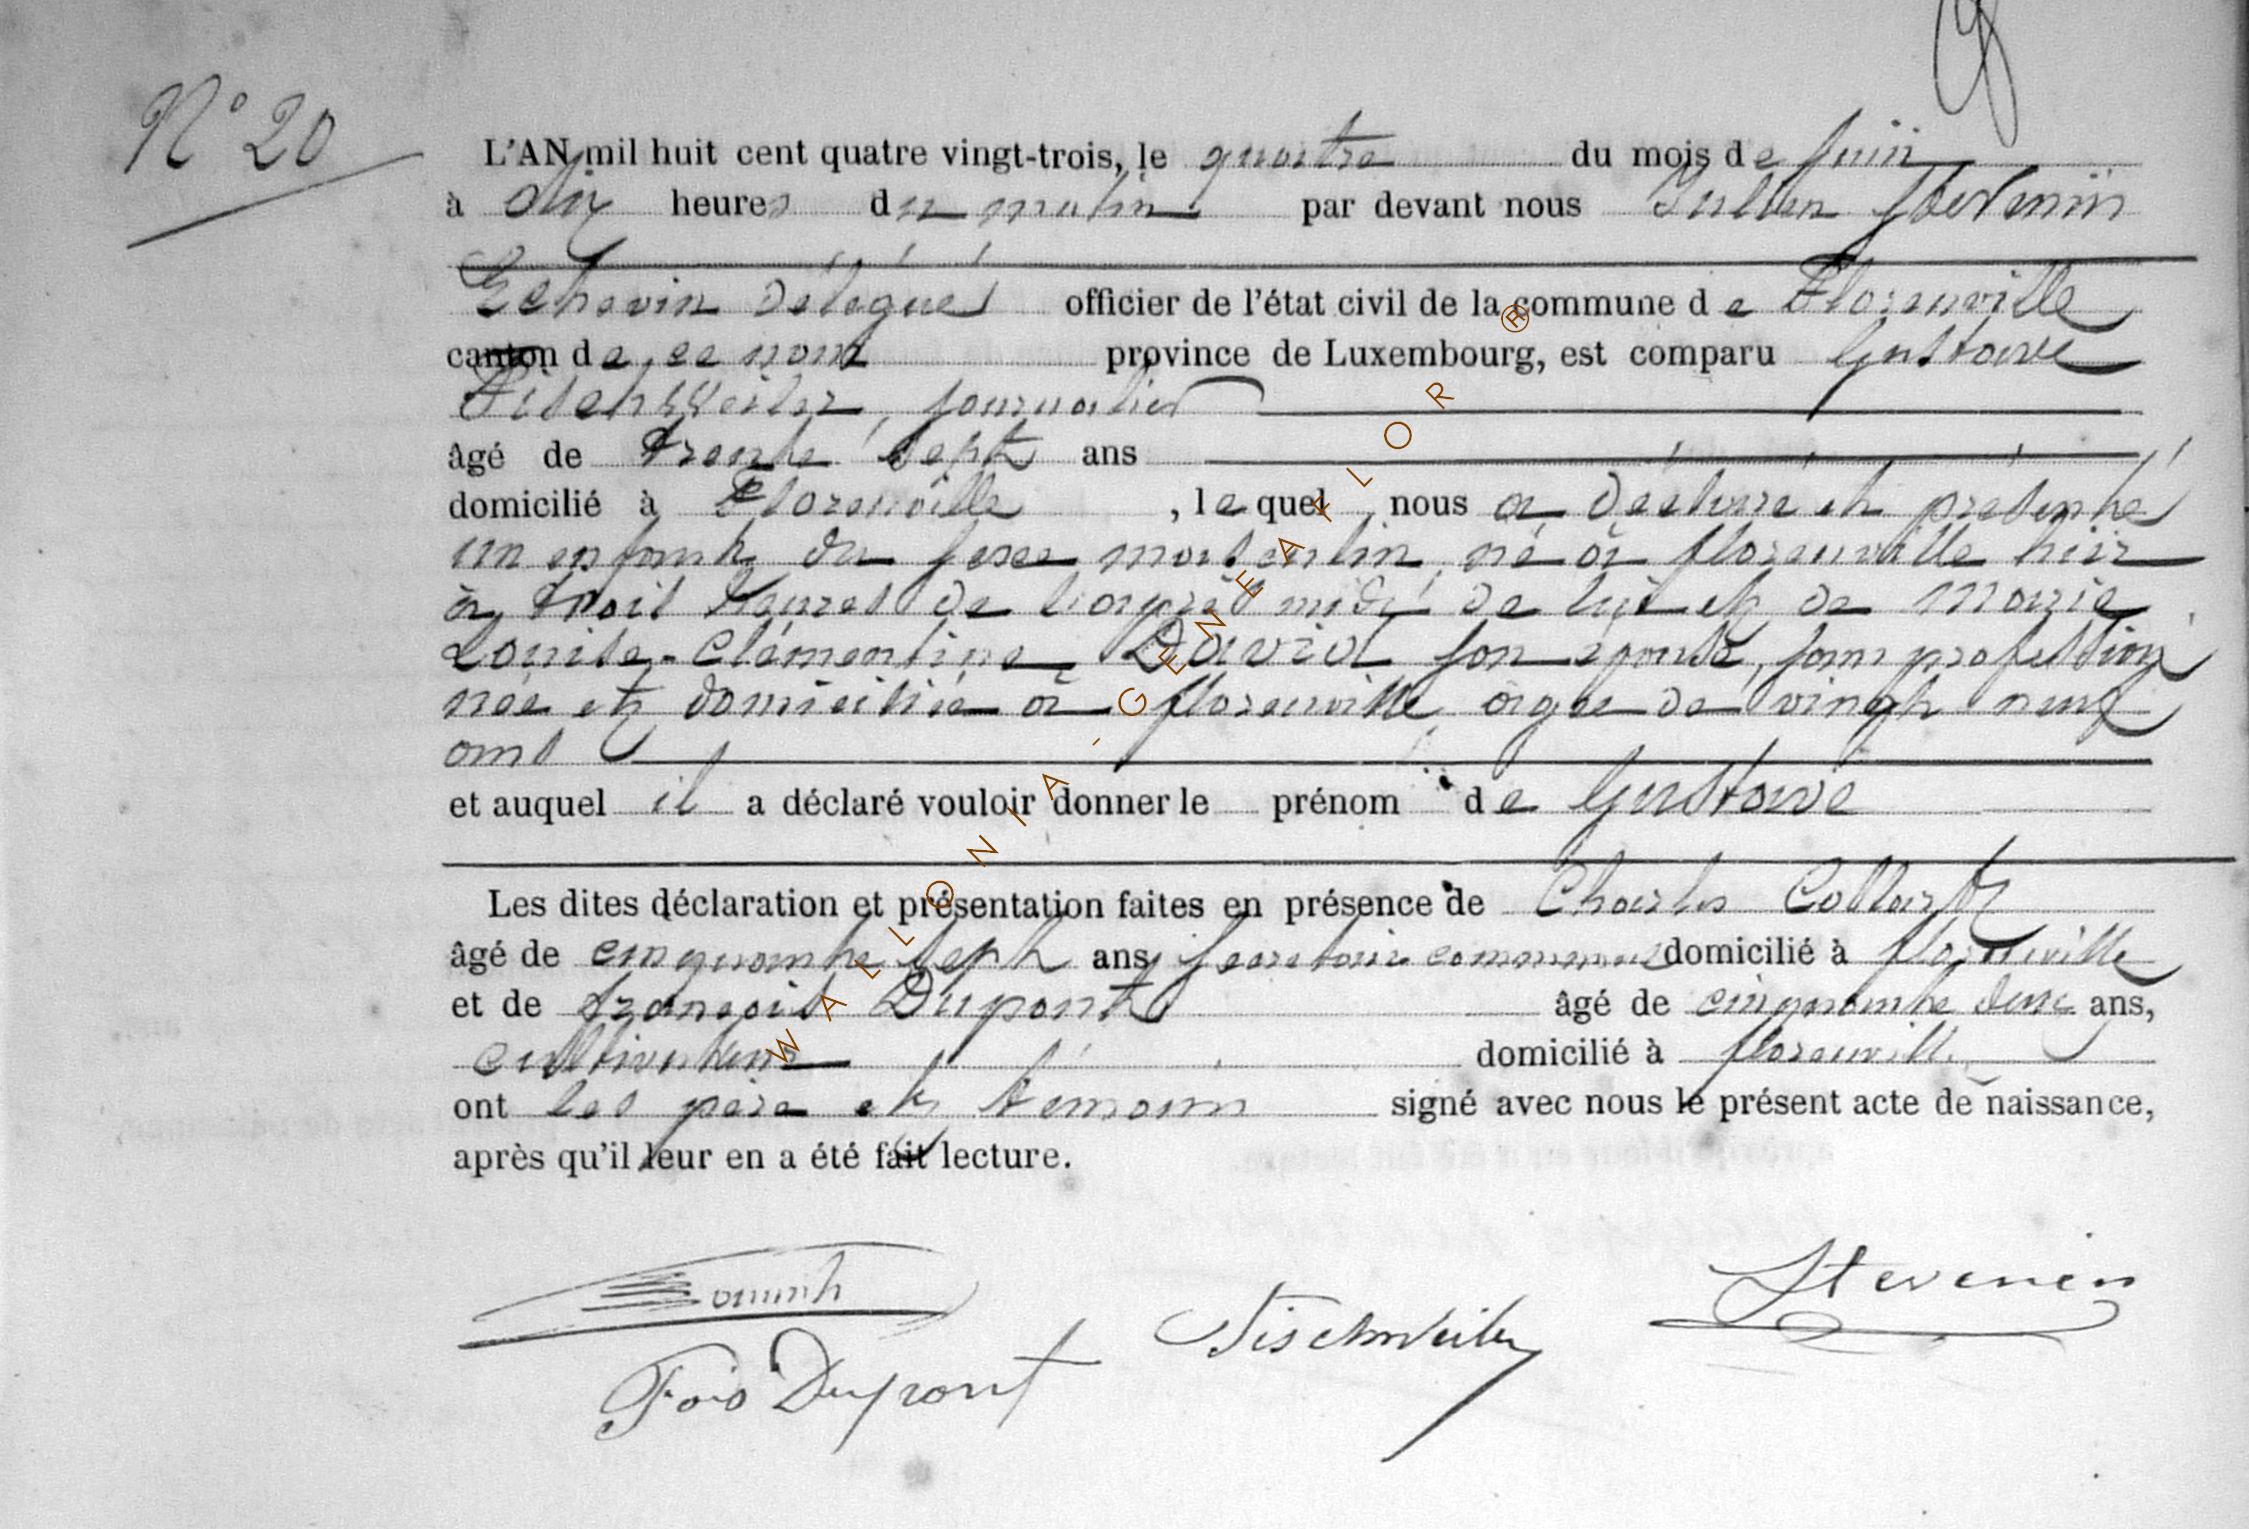 N° 20
L'AN mil huit cent quatre vingt-trois, le quatre du mois de Juin
à dix heures du matin par devant nous Jullien Stevenin
Echevin délégué officier de l'état civil de la commune de Florenville
canton de ce nom province de Luxembourg, est comparu Gustave
Tischweiler, journalier
âgé de trente sept ans
domicilié à Florenville, lequel nous a déclaré et présenté
un enfant du sexe masculin, né à florenville hier
à trois heures de l'après midi de lui et de Marie
Louise-Clémentine David son épouse, sans profession
née et domiciliée à florenville âgée de vingt neuf
ans
et auquel il a déclaré vouloir donner le prénom de Gustave
Les dites déclaration et présentation faites en présence de Charles Collart
âgé de cinquante sept ans, secretaire communal domicilié à florenville
et de françois Dupont âgé de cinquante deux ans,
cultivateur domicilié à florenville
ont les père et témoins signé avec nous le présent acte de naissance,
après qu'il leur en a été fait lecture.
Stevenin
Tischweiler
Fois Dupont
WALLONIA-GENEAFLOR ®